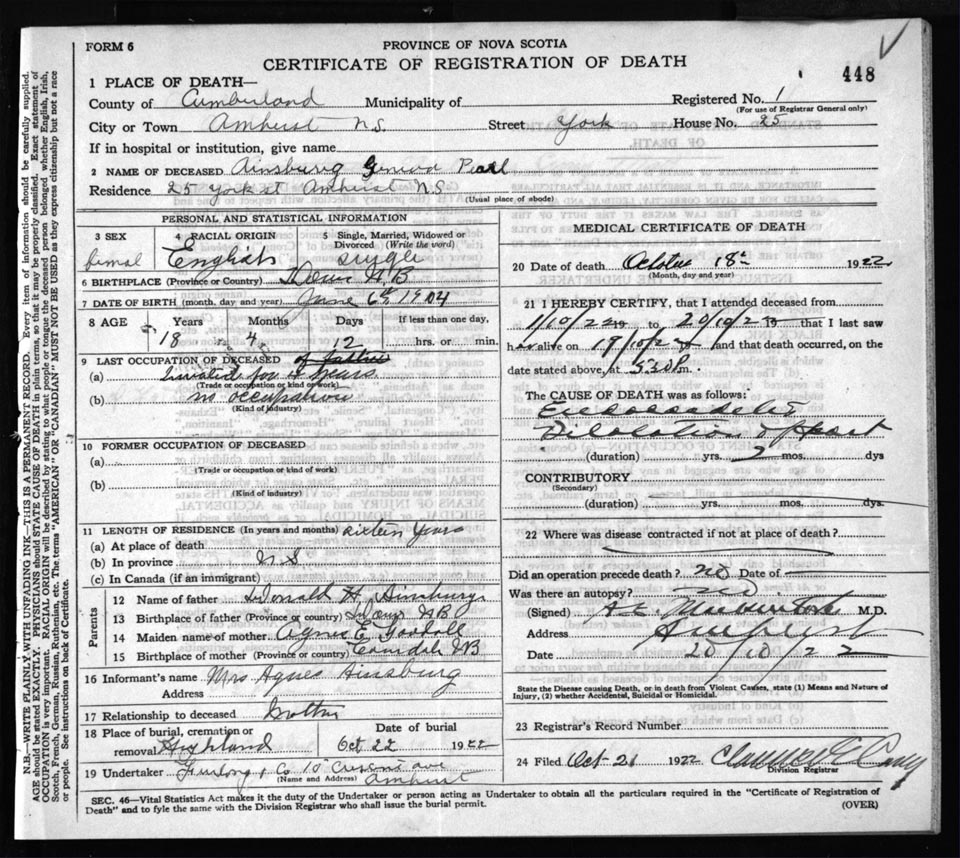 FORM 6
PROVINCE OF NOVA SCOTIA
CERTIFICATE OF REGISTRATION OF DEATH
448
1 PLACE OF DEATH—
County of Cumberland Municipality of Registered No. 1
(For use of Registrar General only)
City or Town Amherst N.S. Street York House No. 25
If in hospital or institution, give name
2 NAME OF DECEASED Ainsburg Geneva Pearl
Residence 25 York st Amherst N S
(Usual place of abode)
PERSONAL AND STATISTICAL INFORMATION
3 SEX 4 RACIAL ORIGIN 5 Single, Married, Widowed or Divorced (Write the word)
femal English single
6 BIRTHPLACE (Province or Country) N.B
7 DATE OF BIRTH (month, day and year) June 6th 1904
8 AGE Years Months Days If less than one day,
18 4 12 hrs. or min.
9 LAST OCCUPATION OF DECEASED of father
(a) Invalid for years
(Trade or occupation or kind of work)
(b) no occupation
(Kind of industry)
10 FORMER OCCUPATION OF DECEASED
(a)
(Trade or occupation or kind of work)
(b)
(Kind of industry)
11 LENGTH OF RESIDENCE (In years and months) sixteen years
(a) At place of death
(b) In province N S
(c) In Canada (if an immigrant)
Parents
12 Name of father Donald H Ainsburg
13 Birthplace of father (Province or country) N B
14 Maiden name of mother Agnes E
15 Birthplace of mother (Province or country) N B
16 Informant's name Mrs Agnes Ainsburg
Address
17 Relationship to deceased Mother
18 Place of burial, cremation or removal Highland Date of burial Oct 22 1922
19 Undertaker Furlong & Co 10 Crescent ave Amherst
(Name and Address)
MEDICAL CERTIFICATE OF DEATH
20 Date of death October 18th 1922
(Month, day and year)
21 I HEREBY CERTIFY, that I attended deceased from
1/10/22 19 to 20/10/22 19 that I last saw
h alive on /10/22 and that death occurred, on
date stated above, at 5.30 P.m.
The CAUSE OF DEATH was as follows:
Dilatation of heart
(duration) yrs. 2 mos. dys
CONTRIBUTORY
(Secondary)
(duration) yrs. mos. dys.
22 Where was disease contracted if not at place of death?
Did an operation precede death? no Date of
Was there an autopsy? no
(Signed) M.D.
Address Amherst
Date 20/10/22
State the Disease causing Death, or in death from Violent Causes, state (1) Means and Nature of Injury, (2) whether Accidental, Suicidal or Homicidal.
23 Registrar's Record Number
24 Filed Oct 21 1922
Division Registrar
SEC. 46—Vital Statistics Act makes it the duty of the Undertaker or person acting as Undertaker to obtain all the particulars required in the "Certificate of Registration of
Death" and to fyle the same with the Division Registrar who shall issue the burial permit.
(OVER)
N.B.—WRITE PLAINLY, WITH UNFADING INK—THIS IS A PERMANENT RECORD. Every item of information should be carefully supplied.
AGE should be stated EXACTLY. PHYSICIANS should STATE CAUSE OF DEATH in plain terms, so that it may be properly classified. Exact statement of
OCCUPATION is very important. RACIAL ORIGIN will be described by stating to what people or tongue the deceased person belonged, whether English, Irish,
Scotch, French, German, Russian, Ruthenian, etc. The terms "AMERICAN" or "CANADIAN" MUST NOT BE USED as they express citizenship but not a race
or people. See instructions on back of Certificate.